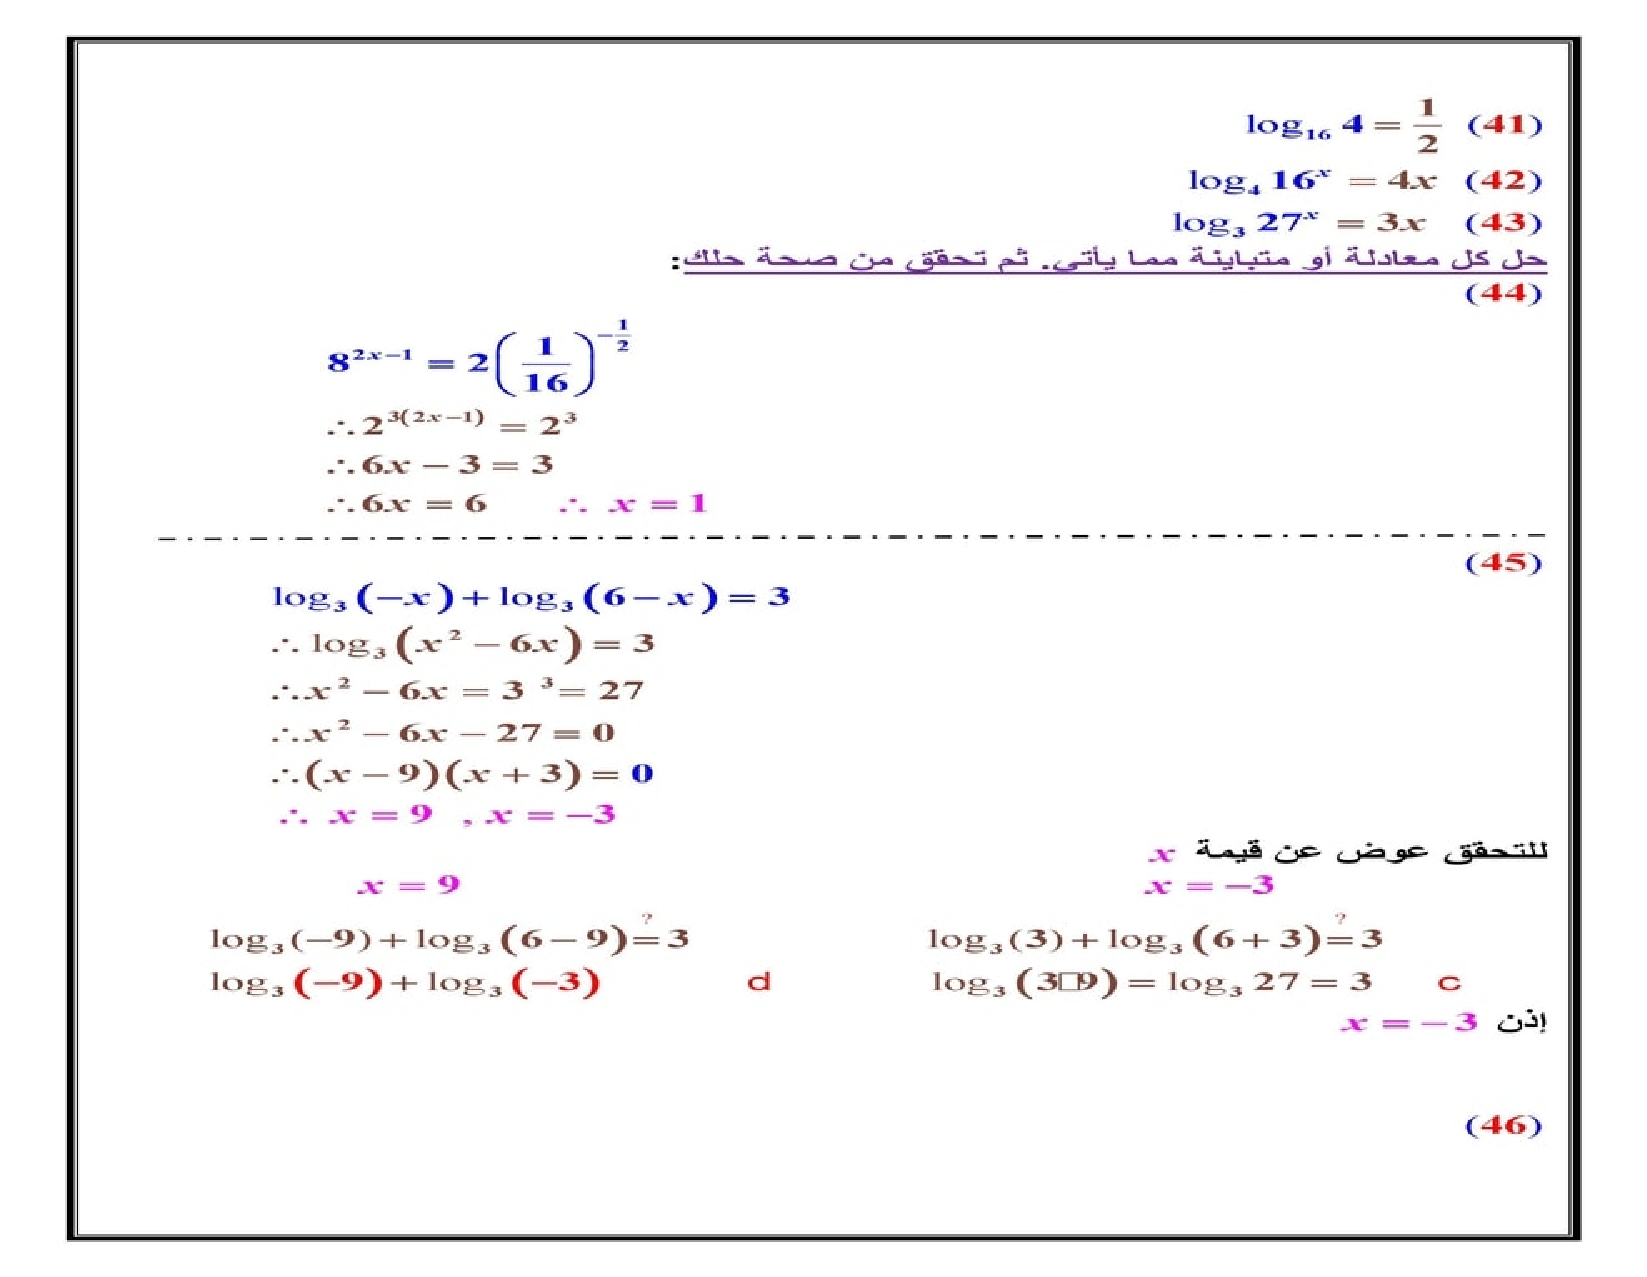 (41) log₁₆ 4 = 1/2
(42) log₄ 16ˣ = 4x
(43) log₃ 27ˣ = 3x
حل كل معادلة أو متباينة مما يأتي. ثم تحقق من صحة حلك:
(44)
8^(2x−1) = 2(1/16)^(−1/2)
∴ 2^(3(2x−1)) = 2³
∴ 6x − 3 = 3
∴ 6x = 6 ∴ x = 1
(45)
log₃(−x) + log₃(6 − x) = 3
∴ log₃(x² − 6x) = 3
∴ x² − 6x = 3³ = 27
∴ x² − 6x − 27 = 0
∴ (x − 9)(x + 3) = 0
∴ x = 9 , x = −3
للتحقق عوض عن قيمة x
x = −3
log₃(3) + log₃(6 + 3) =? 3
log₃(3□9) = log₃ 27 = 3 c
x = 9
log₃(−9) + log₃(6 − 9) =? 3
log₃(−9) + log₃(−3) d
إذن x = −3
(46)